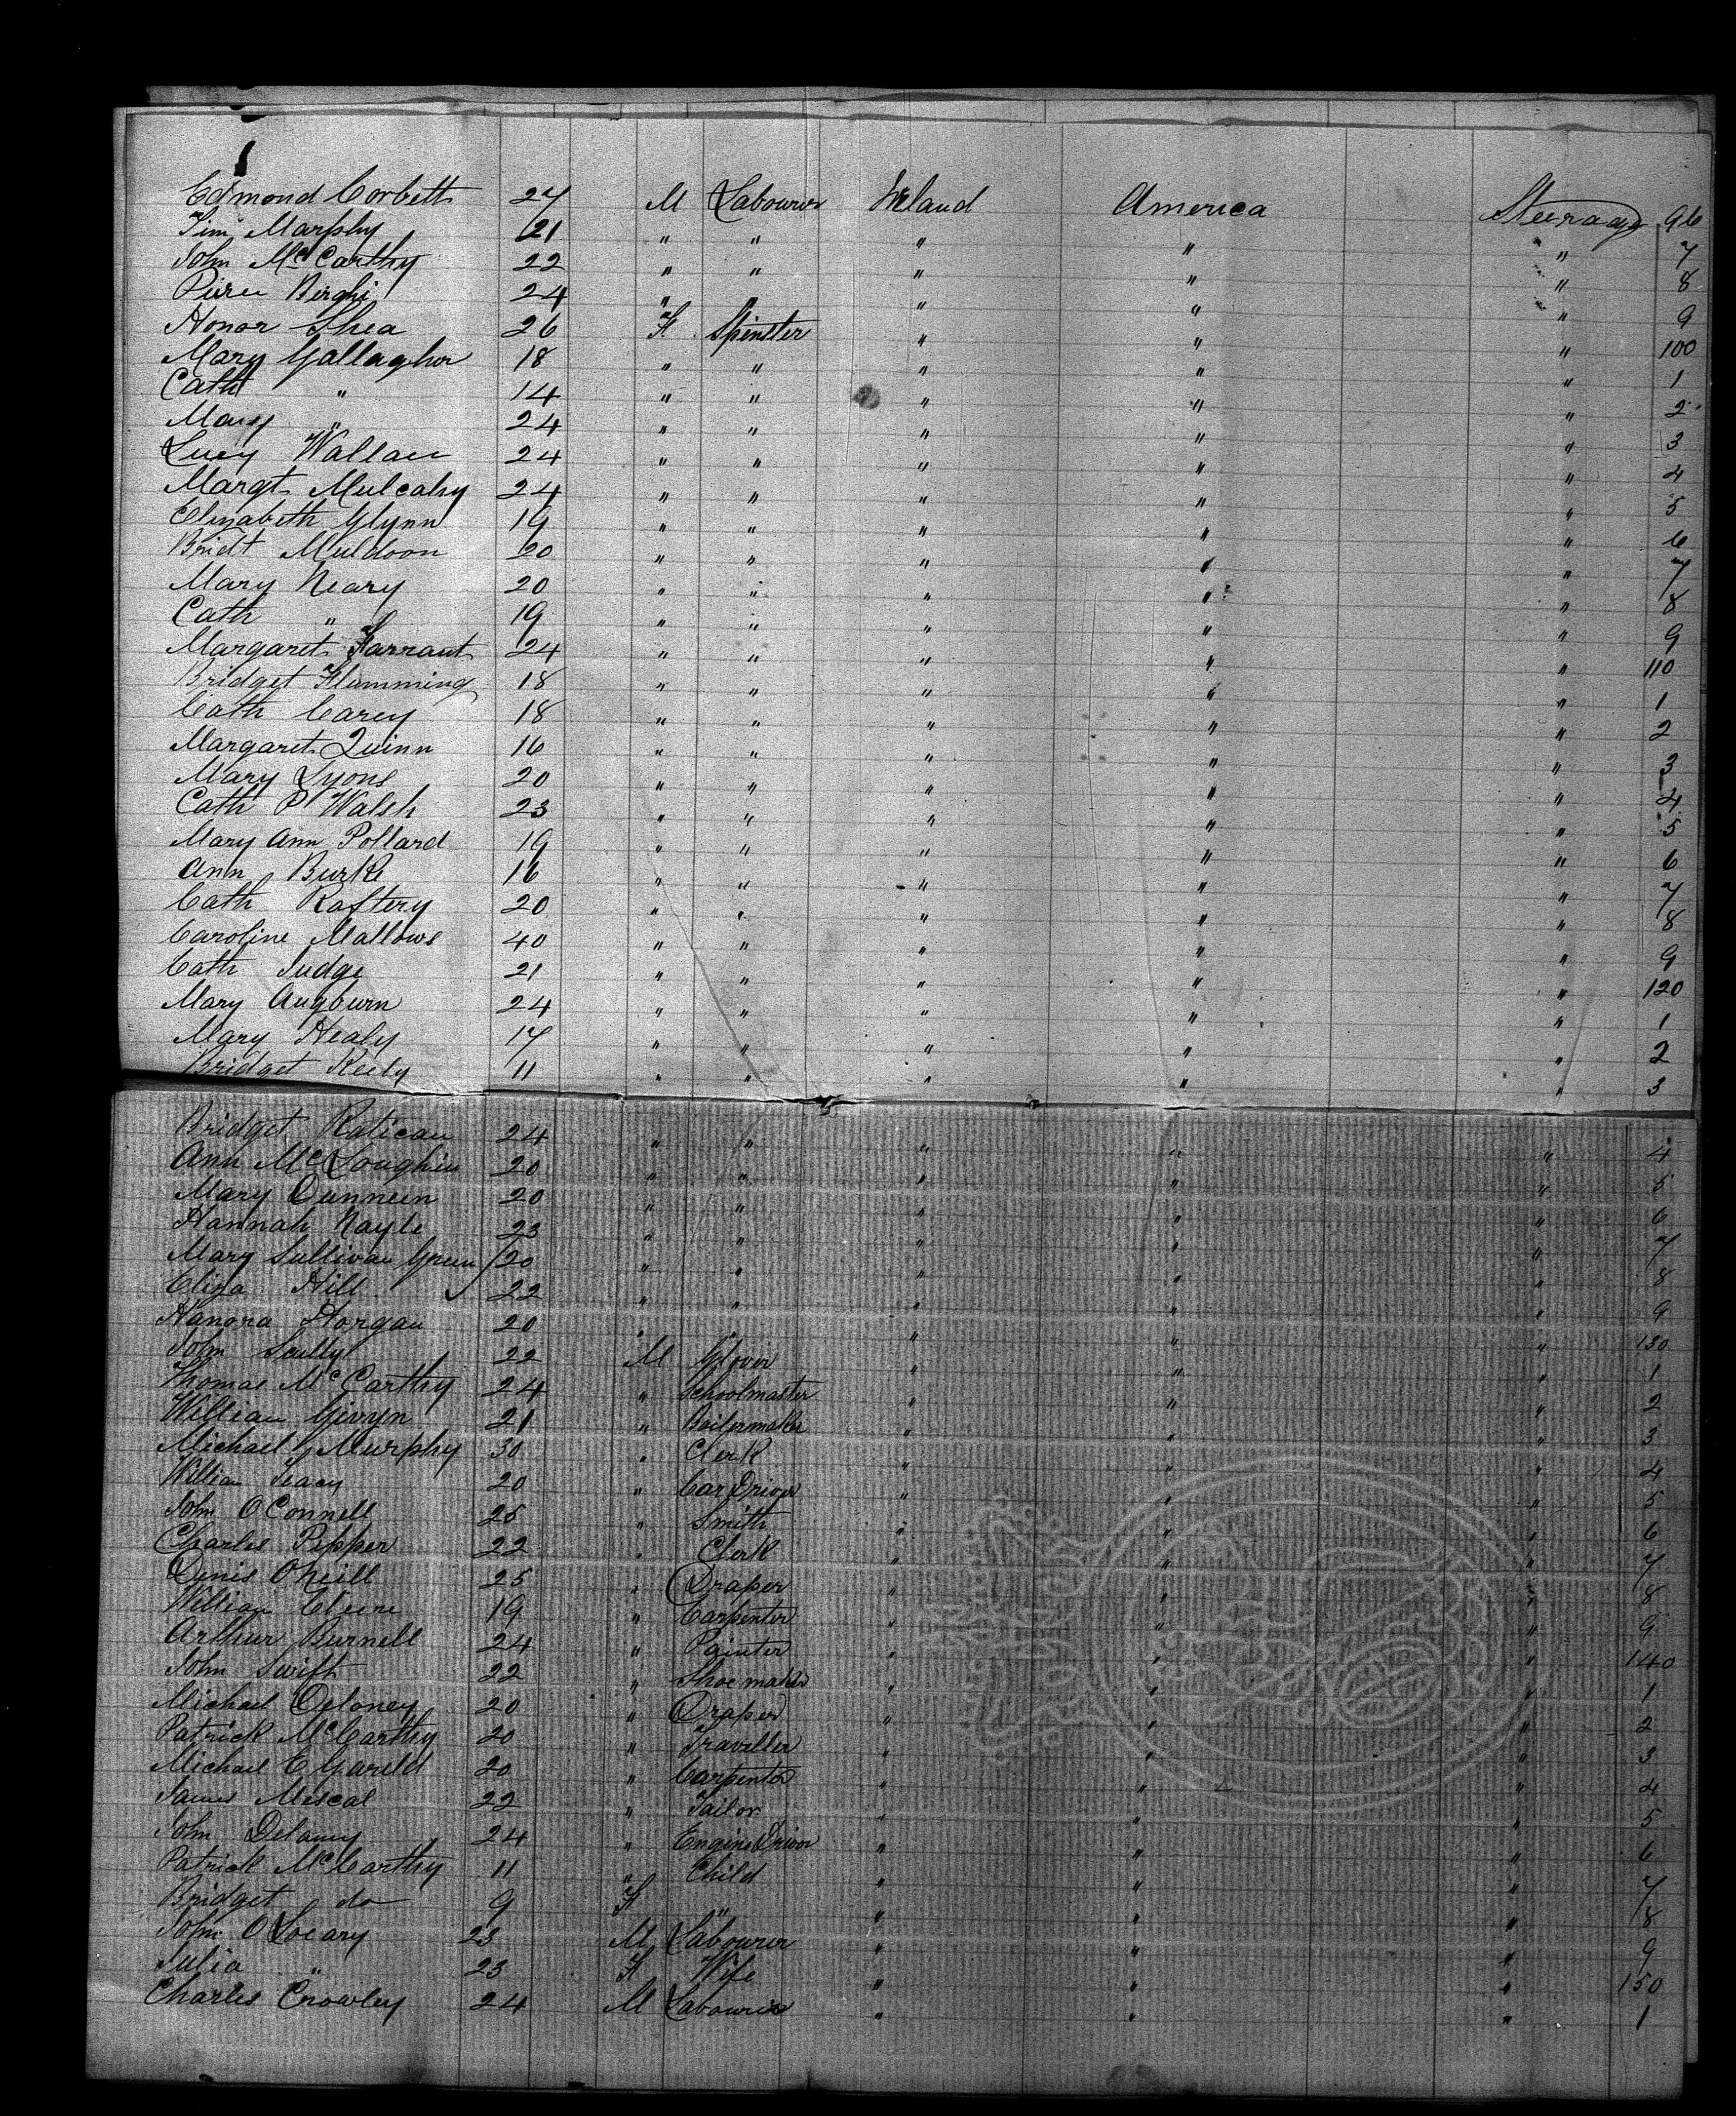 Edmond Corbett 27 M Labourer Ireland America Steerage 96
Tim Murphy 21 " " " " " 7
John McCarthy 22 " " " " " 8
Pierce 24 " " " " " 9
Honor Shea 26 F Spinster " " " 100
Mary Gallagher 18 " " " " " 1
Cath " 14 " " " " " 2
Mary " 24 " " " " " 3
Lucy Wallace 24 " " " " " 4
Margt Mulcahy 24 " " " " " 5
Elizabeth Glynn 19 " " " " " 6
Bridt Muldoon 20 " " " " " 7
Mary Neary 20 " " " " " 8
Cath " 19 " " " " " 9
Margaret Farraut 24 " " " " " 110
Bridget Flumming 18 " " " " " 1
Cath Carey 18 " " " " " 2
Margaret Quinn 16 " " " " " 3
Mary Lyons 20 " " " " " 4
Cath P Walsh 23 " " " " " 5
Mary Ann Pollard 19 " " " " " 6
Ann Burke 16 " " " " " 7
Cath Raftery 20 " " " " " 8
Caroline Mallows 40 " " " " " 9
Cath Judge 21 " " " " " 120
Mary Augburn 24 " " " " " 1
Mary Healy 17 " " " " " 2
Bridget Keely 11 " " " " " 3
Bridget Ratican 24 " " " " " 4
Ann McLoughin 20 " " " " " 5
Mary Dunneen 20 " " " " " 6
Hannah Nayle 23 " " " " " 7
Mary Sullivan Green 20 " " " " " 8
Eliza Hill 22 " " " " " 9
Hanora Horgan 20 " " " " " 130
John Scully 22 M Glover " " " 1
Thomas McCarthy 24 " Schoolmaster " " " 2
William Givyn 21 " Boilermaker " " " 3
Michael Murphy 30 " Clerk " " " 4
William 20 " Car Driver " " " 5
John OConnell 25 " Smith " " " 6
Charles Pepper 22 " Clerk " " " 7
Denis ONeill 25 " Draper " " " 8
William Cleere 19 " Carpenter " " " 9
Arthur Burnell 24 " Painter " " " 140
John Swift 22 " Shoemaker " " " 1
Michael Deloney 20 " Draper " " " 2
Patrick McCarthy 20 " Traveller " " " 3
Michael 20 " Carpenter " " " 4
James Mescal 22 " Tailor " " " 5
John Delaney 24 " Engine Driver " " " 6
Patrick McCarthy 11 " Child " " " 7
Bridget do 9 F " " " " 8
John OLeary 23 M Labourer " " " 9
Julia " 23 F Wife " " " 150
Charles Crowley 24 M Labourer " " " 1